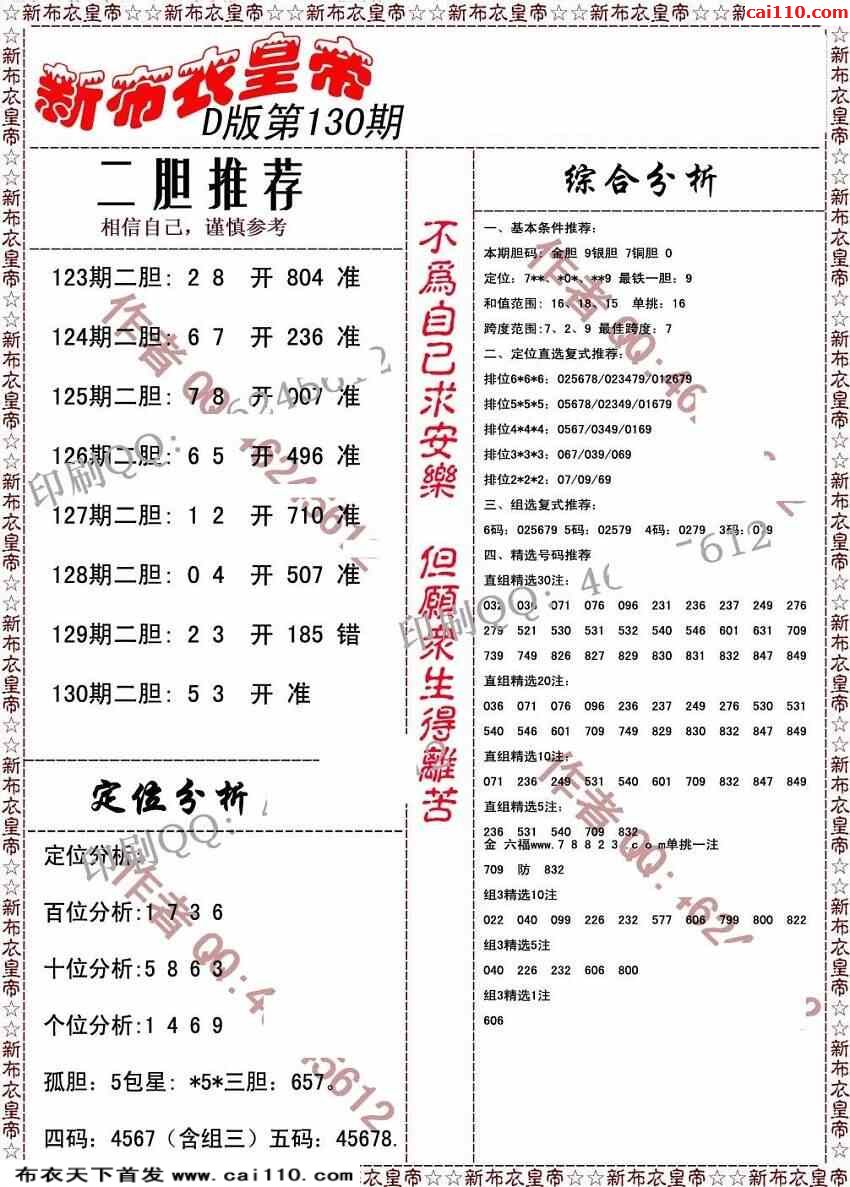 cai110.com
☆新布衣皇帝☆☆新布衣皇帝☆☆新布衣皇帝☆☆新布衣皇帝☆☆新布衣皇帝☆
新布衣皇帝
D版第130期
二胆推荐
相信自己，谨慎参考
123期二胆: 2 8 开 804 准
124期二胆: 6 7 开 236 准
125期二胆: 7 8 开 007 准
126期二胆: 6 5 开 496 准
127期二胆: 1 2 开 710 准
128期二胆: 0 4 开 507 准
129期二胆: 2 3 开 185 错
130期二胆: 5 3 开 准
定位分析
定位分析:
百位分析:1 7 3 6
十位分析:5 8 6 3
个位分析:1 4 6 9
孤胆: 5包星: *5*三胆: 657。
四码: 4567（含组三）五码: 45678.
不為自己求安樂 但願衆生得離苦
综合分析
一、基本条件推荐:
本期胆码: 金胆 9银胆 7铜胆 0
定位: 7**、*0*、**9 最铁一胆: 9
和值范围: 16、18、15 单挑: 16
跨度范围:7、2、9 最佳跨度: 7
二、定位直选复式推荐:
排位6*6*6: 025678/023479/012679
排位5*5*5: 05678/02349/01679
排位4*4*4: 0567/0349/0169
排位3*3*3: 067/039/069
排位2*2*2: 07/09/69
三、组选复式推荐:
6码: 025679 5码: 02579 4码: 0279 3码: 079
四、精选号码推荐
直组精选30注:
032 036 071 076 096 231 236 237 249 276
279 521 530 531 532 540 546 601 631 709
739 749 826 827 829 830 831 832 847 849
直组精选20注:
036 071 076 096 236 237 249 276 530 531
540 546 601 709 749 829 830 832 847 849
直组精选10注:
071 236 249 531 540 601 709 832 847 849
直组精选5注:
236 531 540 709 832
金 六福www.78823.com单挑一注
709 防 832
组3精选10注
022 040 099 226 232 577 606 799 800 822
组3精选5注
040 226 232 606 800
组3精选1注
606
布衣天下首发 www.cai110.com
衣皇帝☆☆新布衣皇帝☆☆新布衣皇帝☆☆新布衣皇帝☆